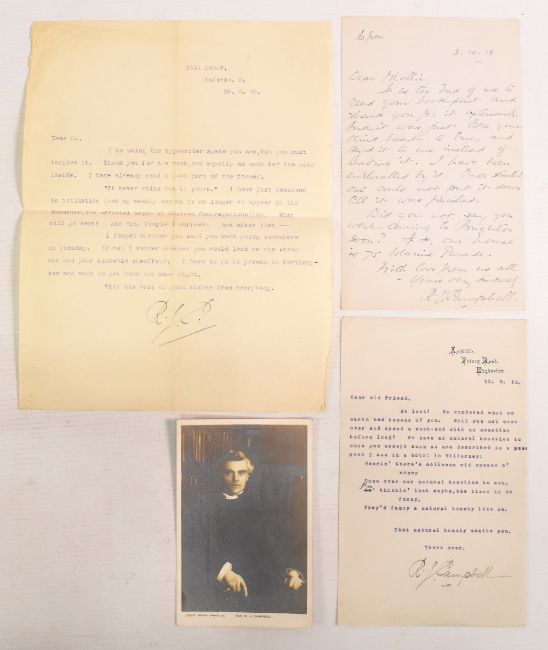 Hill Lodge,
Enfield, N.
Dear M.,
I am using the typewriter again you see, but you must
forgive it. Thank you for the book, and equally so much for the note
inside. I have already read a good part of the former.
"It never rains but it pours." I have just received
an intimation that my weekly sermon is no longer to appear in the
Examiner, the official organ of British Congregationalism. What
will go next? The City Temple I suppose. And after that ——
I forget whether you said you were going anywhere
on Tuesday. If not I wonder whether you would lend me the steam
car and your adorable chauffeur. I have to go to preach in Northamp-
ton and want to get home the same night.
With the best of good wishes from everybody.
R. J. C.
As from
3.10.18
Dear Mollie
It is too bad of me to
read your book first and
thank you for it afterwards.
And it was just like your
kind heart to buy and
send it to me instead of
lending it. I have been
enthralled by it. Once started
one could not put it down
till it was finished.
Did you not say you
were coming to Brighton
soon? our house
is 75 Marine Parade.
With love from us all
Yours very sincerely
R. J. Campbell
Dear old Friend,
At last! We wondered what on
earth had become of you. Will you not come
over and spend a week-end with us sometime
before long? We have no natural beauties to
show you except such as are described in a
poem I saw in a hotel in Killarney:
money
Come over our natural beauties to see,
For thinkin' that maybe, the times is so
funny,
They'd fancy a natural beauty like me.
That natural beauty awaits you.
Yours ever,
R. J. Campbell
REV. R. J. CAMPBELL